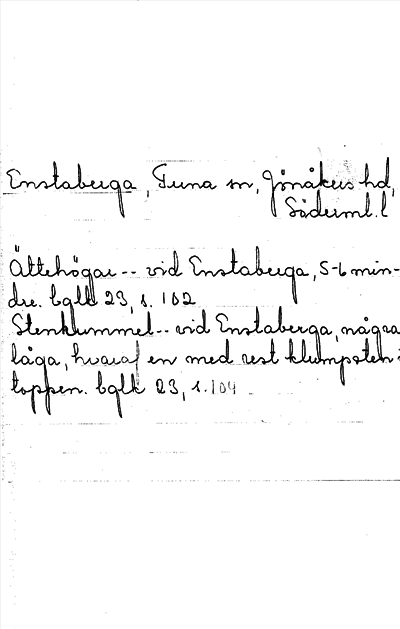 Enstaberga, Tuna sn, Jönåkers hd,
Söderml. l
Ättehögar -- vid Enstaberga, 5-6 min-
dre. bglk 23, s. 102
Stenkummel -- vid Enstaberga, några
låga, hvaraf en med rest klumpsten i
toppen. bglk 23, s. 104